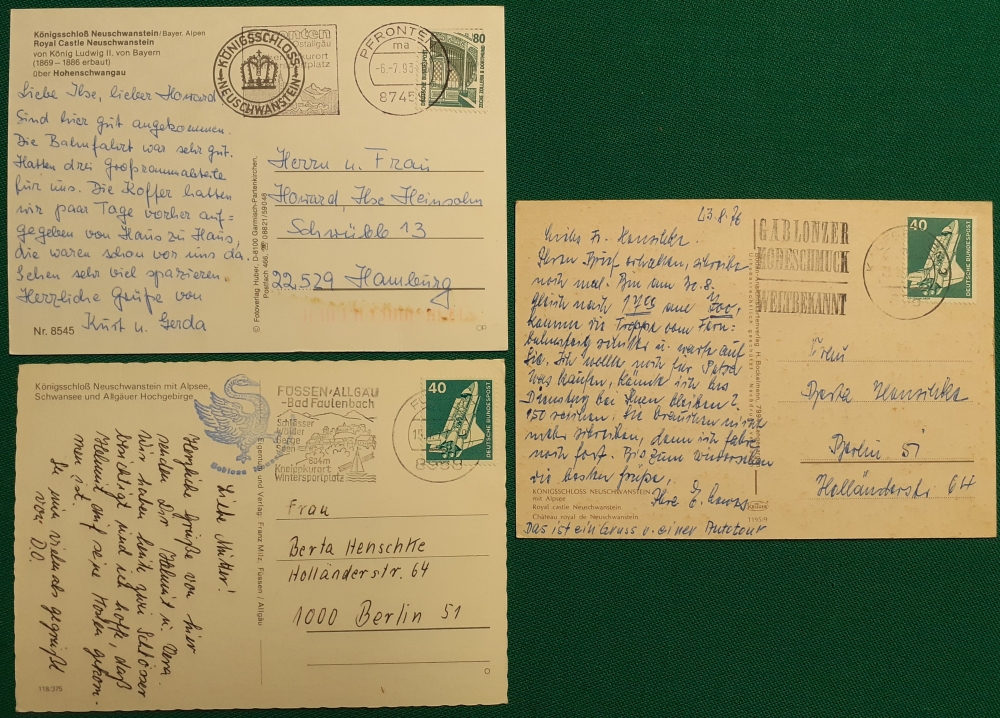 Königsschloß Neuschwanstein/Bayer. Alpen
Royal Castle Neuschwanstein
von König Ludwig II. von Bayern
(1869 – 1886 erbaut)
über Hohenschwangau
Liebe Ilse, lieber Howard
Sind hier gut angekommen.
Die Bahnfahrt war sehr gut.
Hatten drei Großraumabteile
für uns. Die Koffer hatten
wir paar Tage vorher auf=
gegeben von Haus zu Haus,
die waren schon vor uns da.
Gehen sehr viel spazieren.
Herzliche Grüße von
Kurt u. Gerda
Nr. 8545
KÖNIGSSCHLOSS
NEUSCHWANSTEIN
PFRONTEN
ma
-6.-7.93
8745
80
DEUTSCHE BUNDESPOST
ZECHE ZOLLERN II DORTMUND
© Fotoverlag Huber, D-8100 Garmisch-Partenkirchen,
Postfach 466, ☎ 08821/59046
Herrn u. Frau
Howard, Ilse Heinsohn
Schwübb 13
22529 Hamburg
Königsschloß Neuschwanstein mit Alpsee,
Schwansee und Allgäuer Hochgebirge
FÜSSEN-ALLGÄU
-Bad Faulenbach
Schlösser
Wälder
Berge
Seen
804m
Kneippkurort
Wintersportplatz
8958
40
DEUTSCHE BUNDESPOST
Eigentum und Verlag Franz Milz, Füssen / Allgäu
Liebe Mutter!
Herzliche Grüße von hier
senden Dir Helmut u. Vera
Wir haben heute zwei Schlösser
besichtigt und ich hoffe, daß
Helmut auf seine Kosten gekom-
men ist.
Sei nun vielmals gegrüßt
von D.O.
Frau
Berta Henschke
Holländerstr. 64
1000 Berlin 51
118/375
23.8.76
GABLONZER
MODESCHMUCK
WELTBEKANNT
40
DEUTSCHE BUNDESPOST
Ihren Brief erhalten, schreibe
noch mal. Bin am 30.8.
gleich nach 17 00
komme die Treppe vom Fern=
bahnsteig runter u. warte auf
Sie. Ich wollte noch für Petra
was kaufen, könnte ich bis
Dienstag bei Ihnen bleiben?
Sie brauchen nicht
mehr schreiben, denn ich fahre
noch fort. Bis zum Wiedersehen
die besten Grüße,
Ihre E.
Das ist ein Gruss v. einer Autotour
Frau
Berta Henschke
Berlin 51
Holländerstr 64
KÖNIGSSCHLOSS NEUSCHWANSTEIN
mit Alpsee
Royal castle Neuschwanstein
Château royal de Neuschwanstein
1195/9